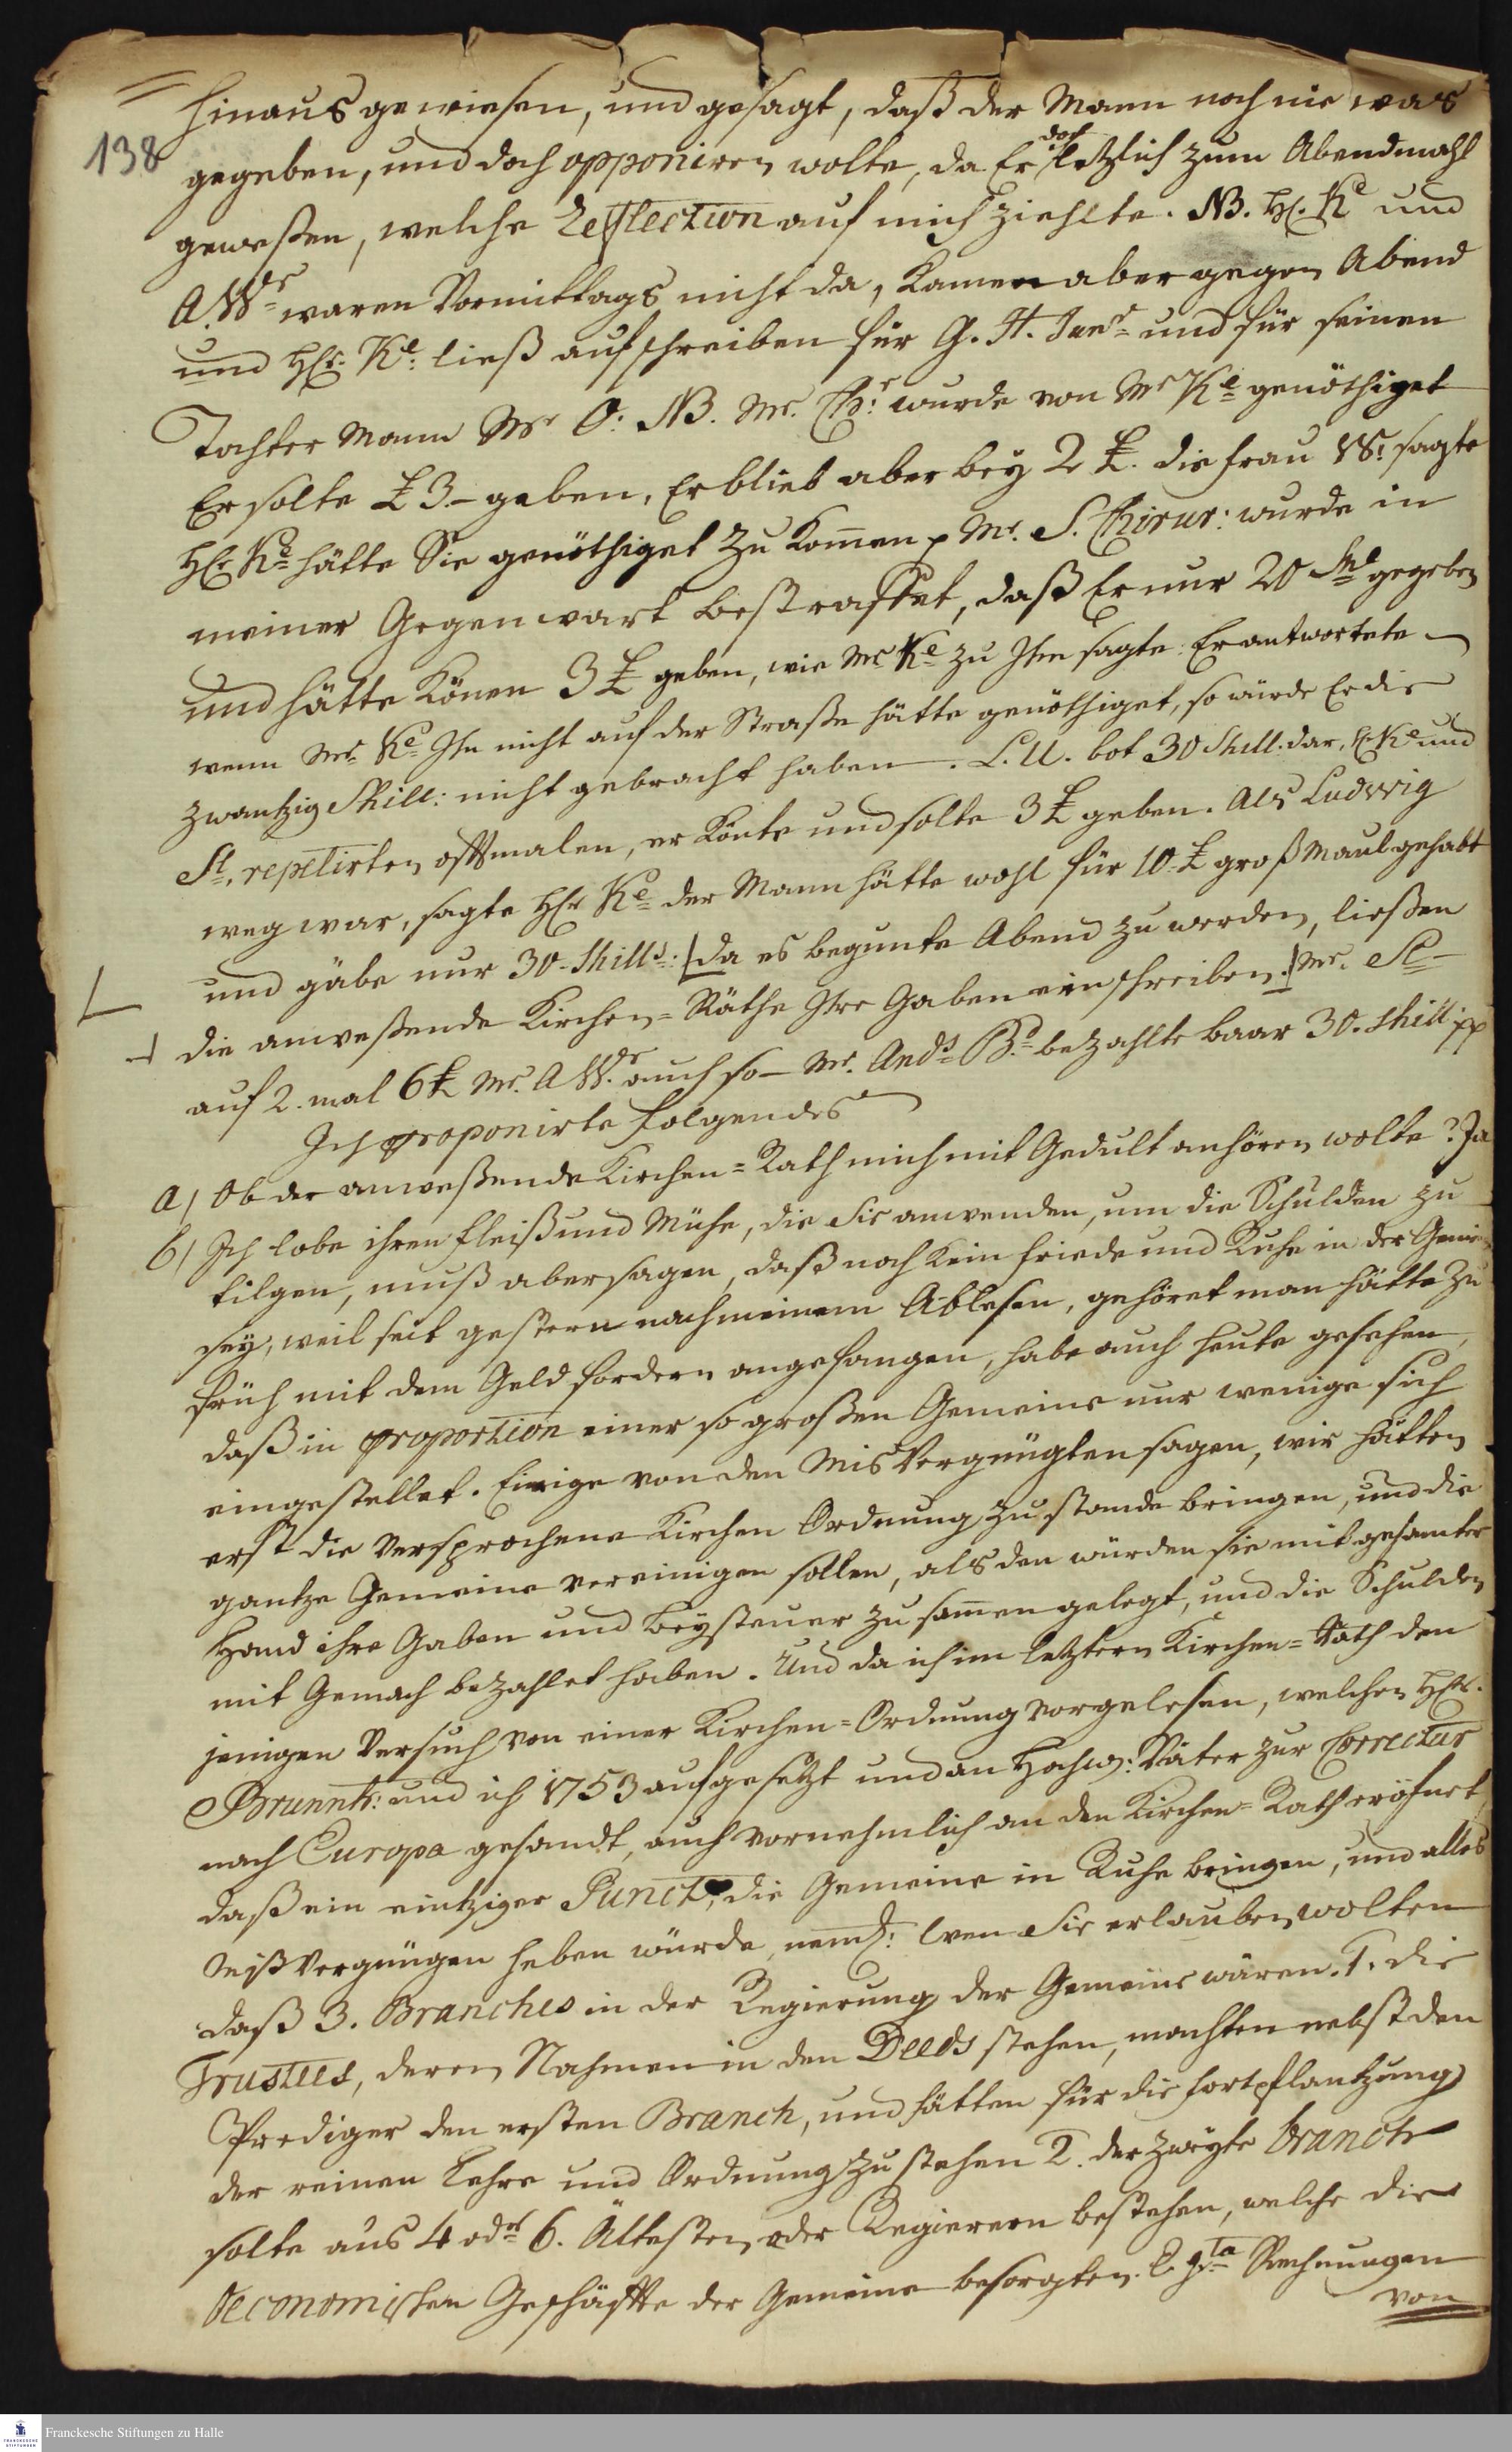 138
hinaus gewiesen, und gesagt, daß der Mann noch nie was
gegeben, und doch opponiren wolte, da Er doch letzlich zum Abendmahl
geweßen, welche Reflection auf mich ziehlte. NB. H. Ke und
A. Wr waren Vormittags nicht da, kamen aber gegen Abend
und HE. Ke ließ aufschreiben für G. H. Junr und für seinen
Tochter Mann Mr O: NB. Mr. Chr: wurde von Mr Ke genöthiget
Er solte £ 3 geben, Er blieb aber bey 2 £. die Frau W: sagte
HE Ke hätte Sie genöthiget zu kom̄en p Mr. S. Chirur: wurde in
meiner Gegenwart bestraffet, daß Er nur 20 Shl gegeben
und hätte kön̄en 3 £ geben, wie Mr Ke zu Ihm sagte: Er antwortete
wenn Mr. Ke Ihn nicht auf der Straße hätte genöthiget, so würde Er die
zwantzig Shill: nicht gebracht haben. L. U. bot 30 Shill: dar, H. Ke und
Sl. repetirten offtmalen, er könte und solte 3 £ geben. Als Ludwig
weg war, sagte HE Ke der Mann hätte wohl für 10 £ groß Maul gehabt
und gäbe nur 30 Shills: [da es begunte Abend zu werden, ließen
die anweßende Kirchen-Räthe Ihre Gaben einschreiben.] Mr. Sl
auf 2. mal 6 £ Mr. A Wr. auch so Mr. Ands Bd bezahlte baar 30. Shill: pp
Ich proponirte folgendes
a) Ob der anweßende Kirchen-Rath mich mit Gedult anhören wolte? Ja
b) Ich lobe ihren Fleiß und Mühe, die Sie anwenden, um die Schulden zu
tilgen, muß aber sagen, daß noch kein Friede und Ruhe in der Gemein
sey, weil seit gestern nach meinem Ablesen, gehöret man hätte zu
früh mit dem Geld fordern angefangen, habe auch heute gesehen,
daß in proportion einer so großen Gemeine nur wenige sich
eingestellet. Einige von den Misvergnügten sagen, wir hätten
erst die versprochene Kirchen Ordnung zu stande bringen, und die
gantze Gemeine vereinigen sollen, als den würden sie mit gesamter
Hand ihre Gaben und Beysteuer zusam̄en gelegt, und die Schulden
mit Gemach bezahlet haben. Und da ich im letztern Kirchen-Rath den
jenigen Versuch von einer Kirchen-Ordnung vorgelesen, welchen HE.
Brunnh: und ich 1753 aufgesetzt und an Hochw: Väter zur Correctur
nach Europa gesandt, auch vornehmlich an den Kirchen-Rath eröfnet,
daß ein eintziger Punct, die Gemeine in Ruhe bringen, und alles
Mißvergnügen heben würde, neml: wen Sie erlauben wolten
daß 3. Branches in der Regierung der Gemeine wären. 1. die
Trustees, deren Nahmen in den Deeds stehen, machten nebst den
Prediger den ersten Branch, und hätten für die Fortpflantzung
der reinen Lehre und Ordnung zu stehen 2. der zweyte branch
solte aus 4 odr 6. Ältesten oder Regierern bestehen, welche die
Oeconomischen Geschäffte der Gemeine besorgten. Rechnungen
von
Franckesche Stiftungen zu Halle